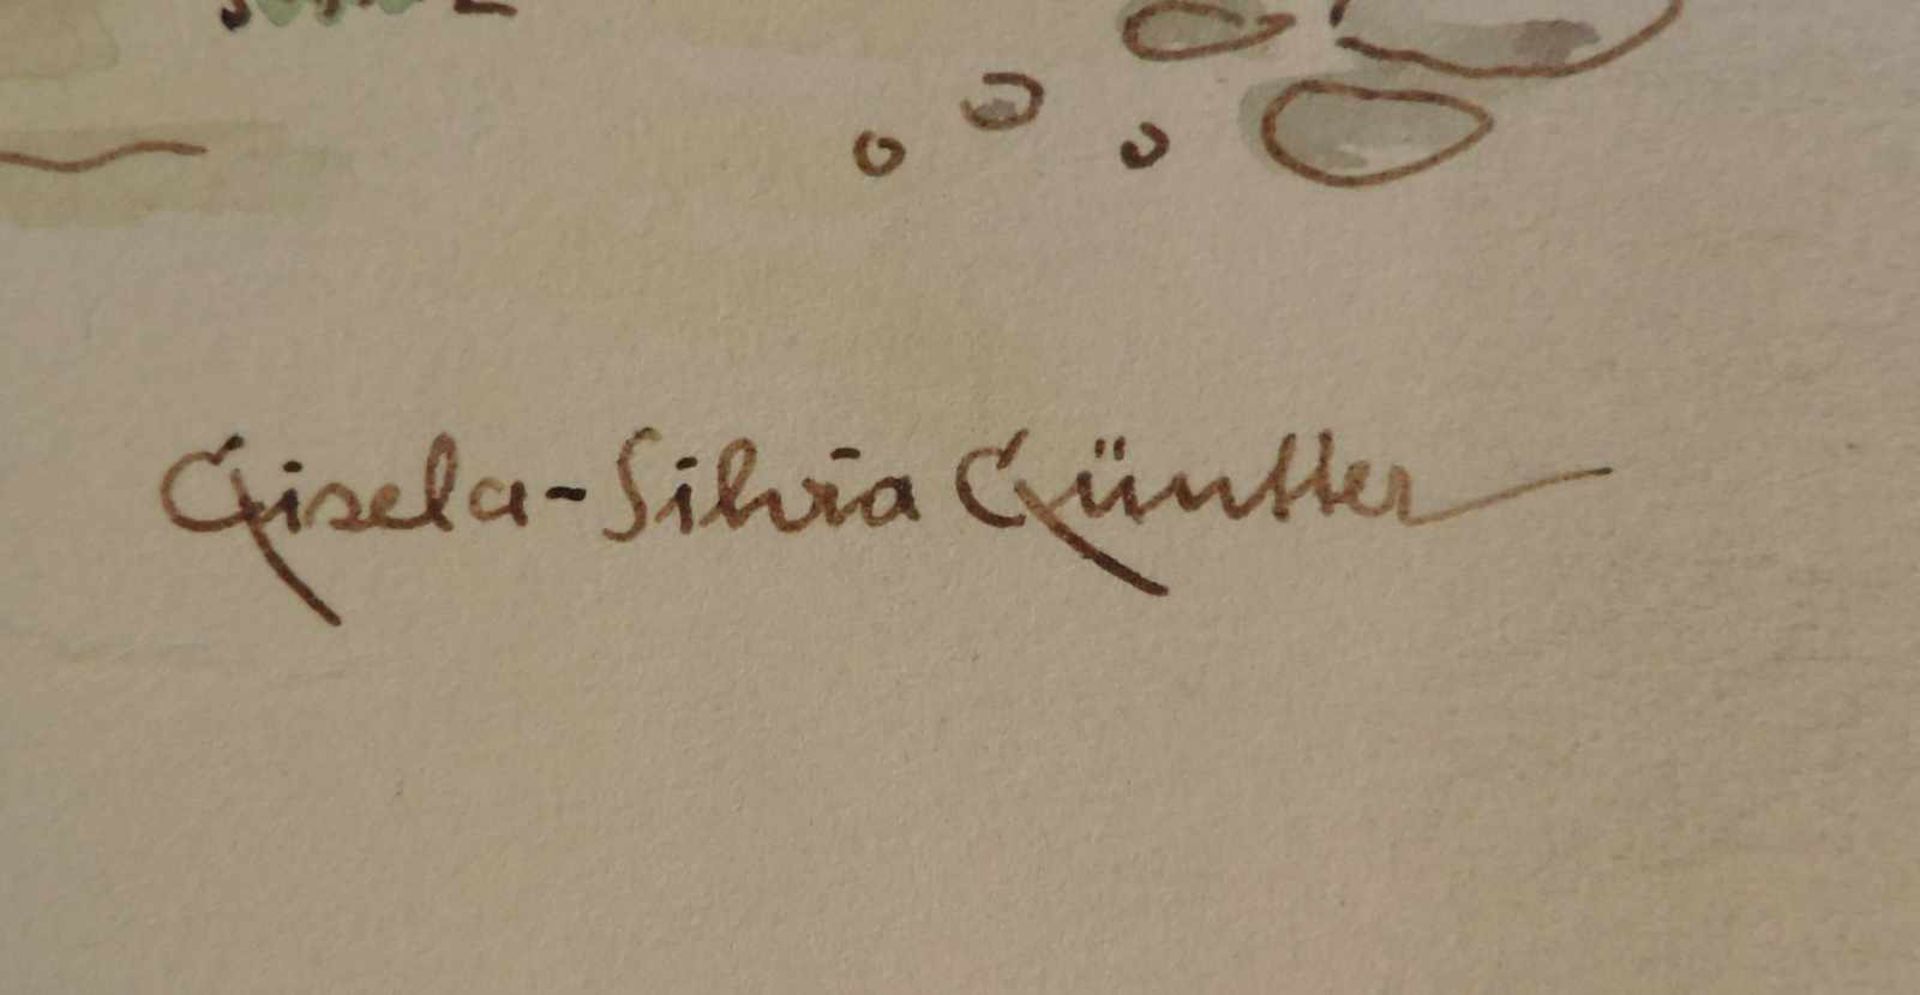 Gisela-Silvia Güntter